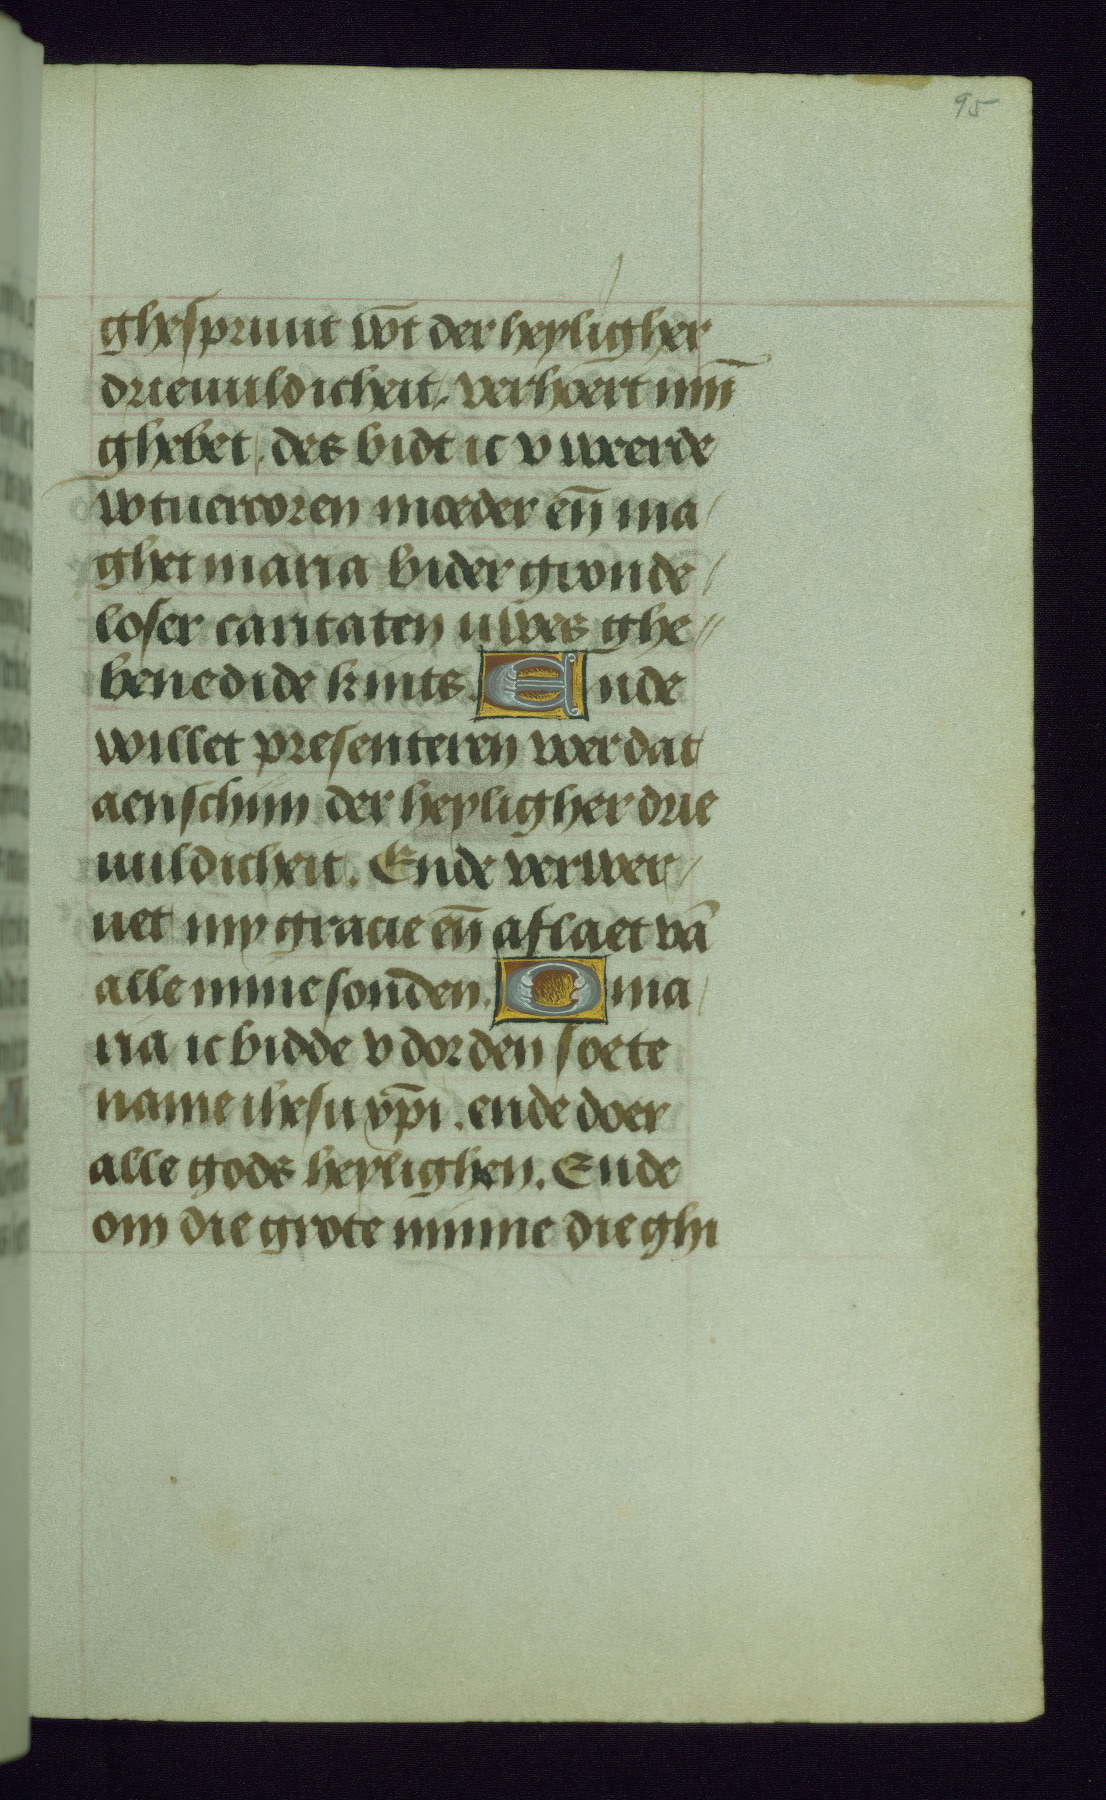 95
ghesprunt wt̄ der heyligher
drieuuldicheit. verhoert mī
ghebet. des bidt ic v weerde
wtuercoren moeder eñ ma/
ghet maria bider gronde/
loser caritaten uwes ghe//
benedide kints. Ende
willet presenteren voer dat
aenschijn der heyligher drie
uuldicheit. Ende verwer/
uet my gracie eñ aflaet vā
alle mine sonden. O ma/
ria ic bidde v dor den soete
name ihesu xp̄i. ende doer
alle gods heylighen. Ende
om die grote minne die ghi